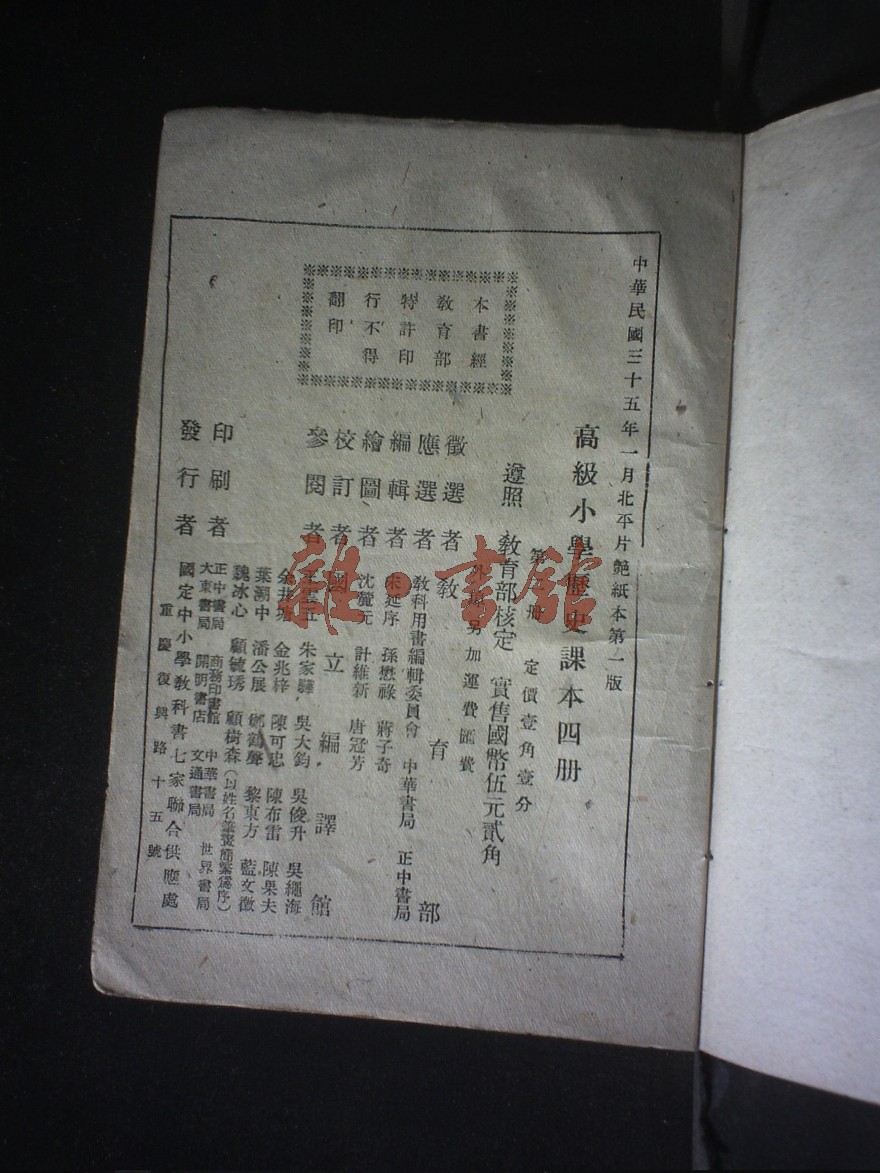 中華民國三十五年一月北平片艶紙本第一版
高級小學歷史課本四册
第 册 定價壹角壹分
遵照教育部核定 實售國幣伍元貳角
外埠另加運費匯費
本書經
教育部
特許印
行不得
翻印
徵選者 教育部
應選者 教科用書編輯委員會 中華書局 正中書局
編輯者 宋延序 孫懋祿 蔣子奇
繪圖者 沈麓元 計維新 唐冠芳
校訂者 國立編譯館
參閱者 王雲五 朱家驊 吳大鈞 吳俊升 吳繩海
余井塘 金兆梓 陳可忠 陳布雷 陳果夫
葉溯中 潘公展 鄭鶴聲 黎東方 藍文徵
魏冰心 顧毓琇 顧樹森 (以姓名筆畫簡繁爲序)
印刷者 正中書局 商務印書館 中華書局 世界書局
大東書局 開明書店 文通書局
發行者 國定中小學教科書七家聯合供應處
重慶復興路十五號
雜·書館